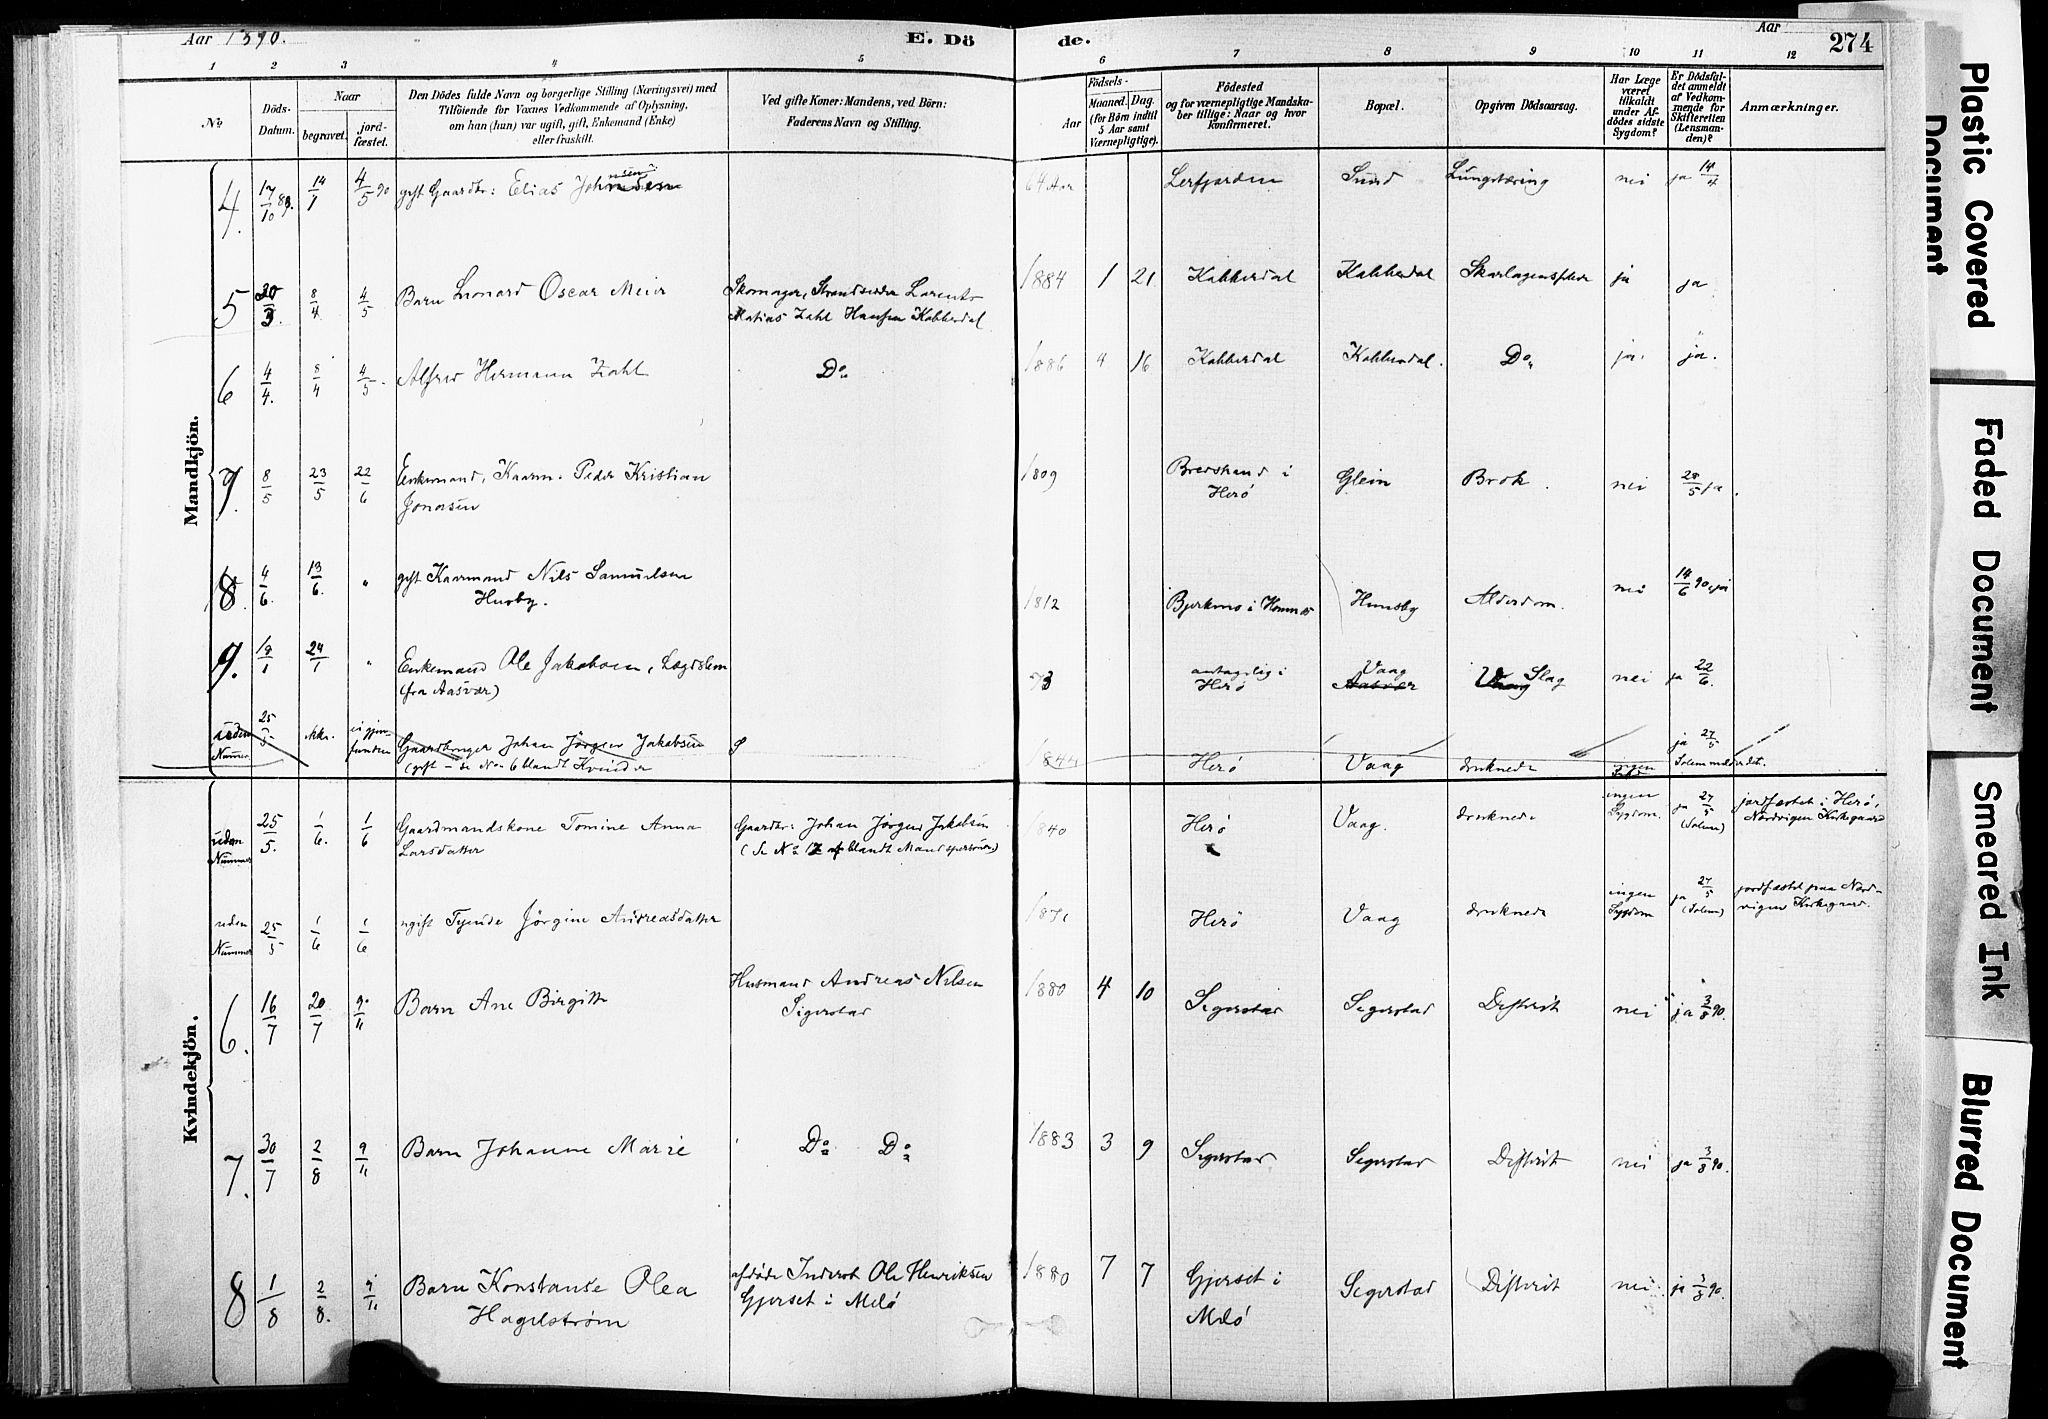 Aar 1890.
E. Dö
de.
Aar
274
1 2 3 4 5 6 7 8 9 10 11 12
No
Döds-Datum.
Naar
begravet.
jordfæstet.
Den Dödes fulde Navn og borgerlige Stilling (Næringsvei) med
Tilföiende for Voxnes Vedkommende af Oplysning,
om han (hun) var ugift, gift, Enkemand (Enke)
eller fraskilt.
Ved gifte Koner: Mandens, ved Börn:
Faderens Navn og Stilling.
Födsels-
Aar
Maaned.
Dag.
(for Börn indtil
5 Aar samt
Værnepligtige).
Födested
og for værnepligtige Mandska-
ber tillige: Naar og hvor
konfirmeret.
Bopæl.
Opgiven Dödsaarsag.
Har Læge
været
tilkaldt
under Af-
dödes sidste
Sygdom?
Er Dödsfal-
det anmeldt
af Vedkom-
mende for
Skifteretten
(Lensman-
den)?
Anmærkninger.
Mandkjön.
4. 17/10 89. 14/1 4/5 90 gift Gaardbr: Elias Johnsen 64 Aar Lerfjorden Sund Lungetæring nei ja 14/4
5 30/3. 8/4 4/5 Barn Leonard Oscar Meier Skomager, Strandsidder Larents
Matias Zahl Hansen Kobberdal 1884 1 21 Kobberdal Kobberdal Skarlagensfeber ja ja
6 4/4. 8/4 4/5. Alfred Hermann Zahl Do 1886 4 16 Kobberdal Kobberdal. Do ja. ja.
7. 8/5 23/5 22/6 Enkemand, Kaarm: Peder Kristian
Jonasen 1809 Bredstrand i
Herö Glein Brok. nei 28/5 ja.
8. 4/6. 13/6. " gift Kaarmand Nils Samuelsen
Husby. 1812 Bjerkmo i Hemnes Husby Alderdom. nei 14/6 90, ja
9. 24/1 " Enkemand Ole Jakobsen, Lægdslem
(fra Aasvær) 73 antagelig i
Herö Vaag
Aasvær Vaag Slag nei ja 22/6.
uden
Nummer 25/5 ikke. igjen-
funden Gaardbruger Johan Jørgen Jakobsen
(gift - se No 6 blandt Kvinder 1844 Herö Vaag druknede ingen ja 27/5
Kvindekjön.
uden
Nummer 25/5. 1/6. 1/6 Gaardmandskone Tomine Anna
Larsdatter Gaardbr: Johan Jørgen Jakobsen
(Se No blandt Mandspersoner) 1840 Herö Vaag. druknede ingen
Sygdom. ja 27/5
(Solem) jordfæstet i Herö,
Nordvigen Kirkegaard
uden
Nummer 25/5 1/6 1/6 ugift Tyende Jörgine Andreasdatter 1871 Herö Vaag druknede ingen
Sygdom ja 27/5
(Solem) jordfæstet paa Nord-
vigen Kirkegaard.
6. 16/7 20/7 9/11 Barn Ane Birgitte Husmand Andreas Nilsen
Sigerstad 1880 4 10 Segerstad Segerstad Difterit nei ja 3/8 90.
7. 30/7 2/8 9/11 Barn Johanne Marie Do Do 1883 3 9 Segerstad Segerstad Difterit nei ja 3/8 90.
8 1/8 2/8. 9/11 Barn Konstanse Olea
Hagelström afdöde Inderst Ole Henriksen
Gjerset i Melö 1880 7 7 Gjerset i
Melö Segerstad Difterit nei. ja 3/8 90.
Plastic Covered Document
Faded Document
Smeared Ink
Blurred Document